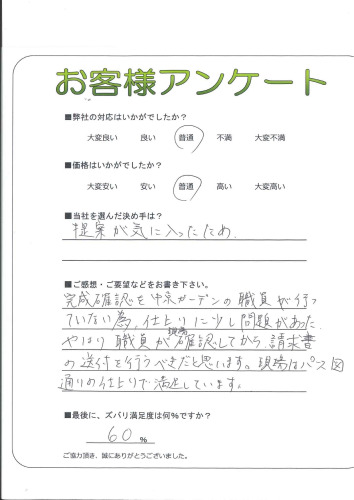 お客様アンケート
■弊社の対応はいかがでしたか？
大変良い 良い 普通 不満 大変不満
■価格はいかがでしたか？
大変安い 安い 普通 高い 大変高い
■当社を選んだ決め手は？
提案が気に入ったため
■ご感想・ご要望などをお書き下さい。
完成確認を中京ガーデンの職員が行っ
ていない為、仕上りに少し問題があった。
やはり職員が現場確認してから、請求書
の送付を行うべきだと思います。現場はパース図
通りの仕上りで満足しています。
■最後に、ズバリ満足度は何%ですか？
60 %
ご協力頂き、誠にありがとうございました。